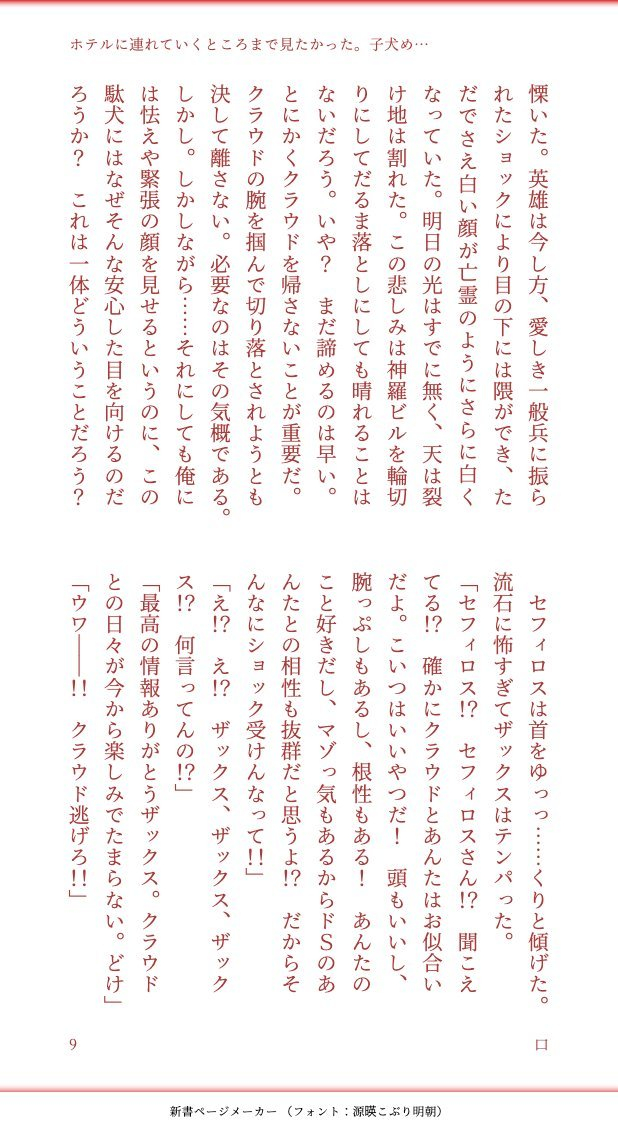 ホテルに連れていくところまで見たかった。子犬め…
慄いた。英雄は今し方、愛しき一般兵に振ら
れたショックにより目の下には隈ができ、た
だでさえ白い顔が亡霊のようにさらに白く
なっていた。明日の光はすでに無く、天は裂
け地は割れた。この悲しみは神羅ビルを輪切
りにしてだるま落としにしても晴れることは
ないだろう。いや？　まだ諦めるのは早い。
とにかくクラウドを帰さないことが重要だ。
クラウドの腕を掴んで切り落とされようとも
決して離さない。必要なのはその気概である。
しかし。しかしながら……それにしても俺に
は怯えや緊張の顔を見せるというのに、この
駄犬にはなぜそんな安心した目を向けるのだ
ろうか？　これは一体どういうことだろう？
　セフィロスは首をゆっっ……くりと傾げた。
流石に怖すぎてザックスはテンパった。
「セフィロス!?　セフィロスさん!?　聞こえ
てる!?　確かにクラウドとあんたはお似合い
だよ。こいつはいいやつだ！　頭もいいし、
腕っぷしもあるし、根性もある！　あんたの
こと好きだし、マゾっ気もあるからドＳのあ
んたとの相性も抜群だと思うよ!?　だからそ
んなにショック受けんなって!!」
「え!?　え!?　ザックス、ザックス、ザック
ス!?　何言ってんの!?」
「最高の情報ありがとうザックス。クラウド
との日々が今から楽しみでたまらない。どけ」
「ウワ――!!　クラウド逃げろ!!」
口
9
新書ページメーカー（フォント：源暎こぶり明朝）